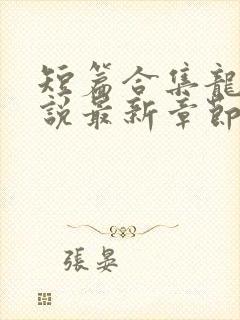 短篇合集龍
說最新章節
張晏